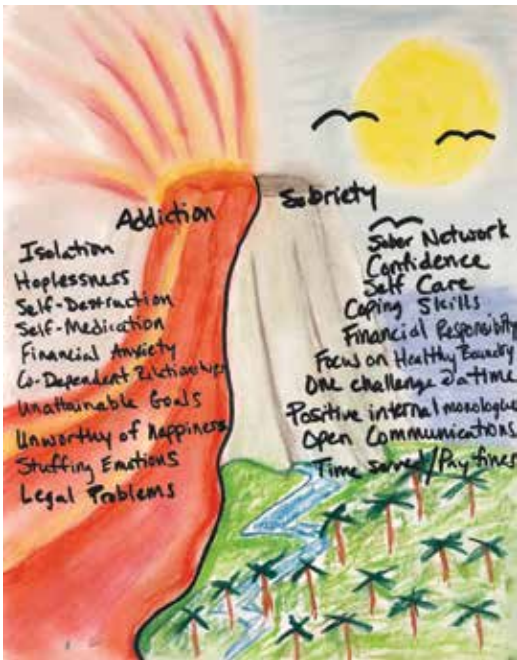 Addiction
Isolation
Hoplessness
Self-Destruction
Self-Medication
Financial Anxiety
Co-Dependent Relationships
Unattainable Goals
Unworthy of Happiness
Stuffing Emotions
Legal Problems
Sobriety
Sober Network
Confidence
Self Care
Coping Skills
Financial Responsibility
Focus on Healthy Boundry
One challenge @ a time
Positive internal monologue
Open Communications
Time served/Pay fines